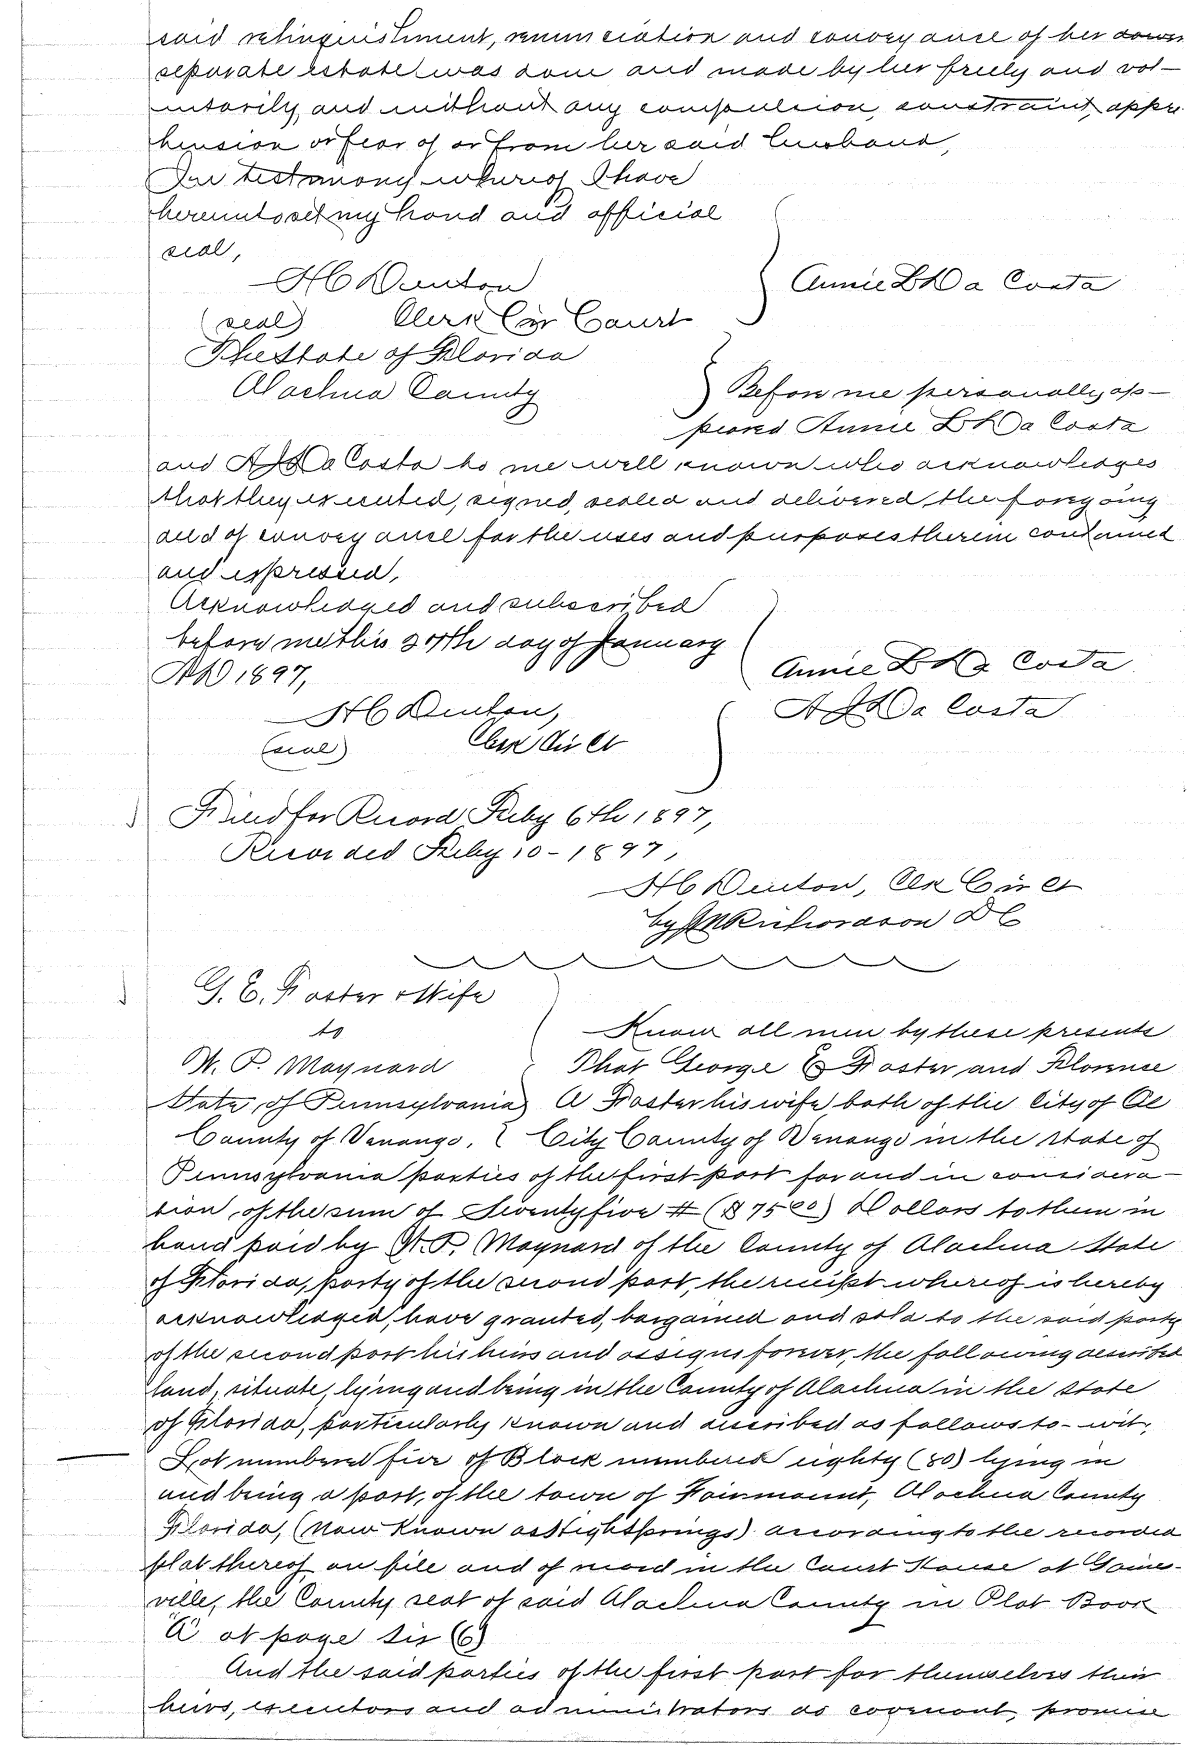 said relinquishment, renunciation and conveyance of her dower
separate estate was done and made by her freely and vol-
untarily and without any compulsion, constraint, appre
hension or fear of or from her said husband,
In testimony whereof I have
hereunto set my hand and official
seal,
H C Denton
Annie L Da Costa
(seal) Clerk Cir Court
The State of Florida
Alachua County
Before me personally ap-
peared Annie L Da Costa
and A J Da Costa to me well known who acknowledges
that they executed, signed, sealed and delivered the foregoing
deed of conveyance for the uses and purposes therein contained
and expressed,
Acknowledged and subscribed
before me this day of January
AD 1897,
Annie L Da Costa
A J Da Costa
H C Denton,
(seal) Clerk Cir Ct
Filed for Record Feby 6th 1897,
Recorded Feby 10-1897,
H C Denton, Clk Cir Ct
by Richardson D C
G. E. Foster & Wife
to
Know all men by these presents
W. P. Maynard
That George E Foster and Florence
State of Pennsylvania
A Foster his wife both of the City of Oil
County of Venango,
City County of Venango in the state of
Pennsylvania parties of the first part for and in considera-
tion of the sum of Seventyfive # ($75 00) Dollars to them in
hand paid by W. P. Maynard of the County of Alachua State
of Florida, party of the second part, the receipt whereof is hereby
acknowledged, have granted, bargained and sold to the said party
of the second part his heirs and assigns forever, the following described
land, situate, lying and being in the County of Alachua in the state
of Florida, particularly known and described as follows to-wit,
Lot numbered five of Block numbered eighty (80) lying in
and being a part, of the town of Fairmount, Alachua County
Florida, (now known as Hight Springs) according to the recorded
plat thereof on file and of record in the Court House at Gaines-
ville, the County seat of said Alachua County in Plat Book
"A" at page six (6)
And the said parties of the first part for themselves their
heirs, executors and administrators do covenant, promise